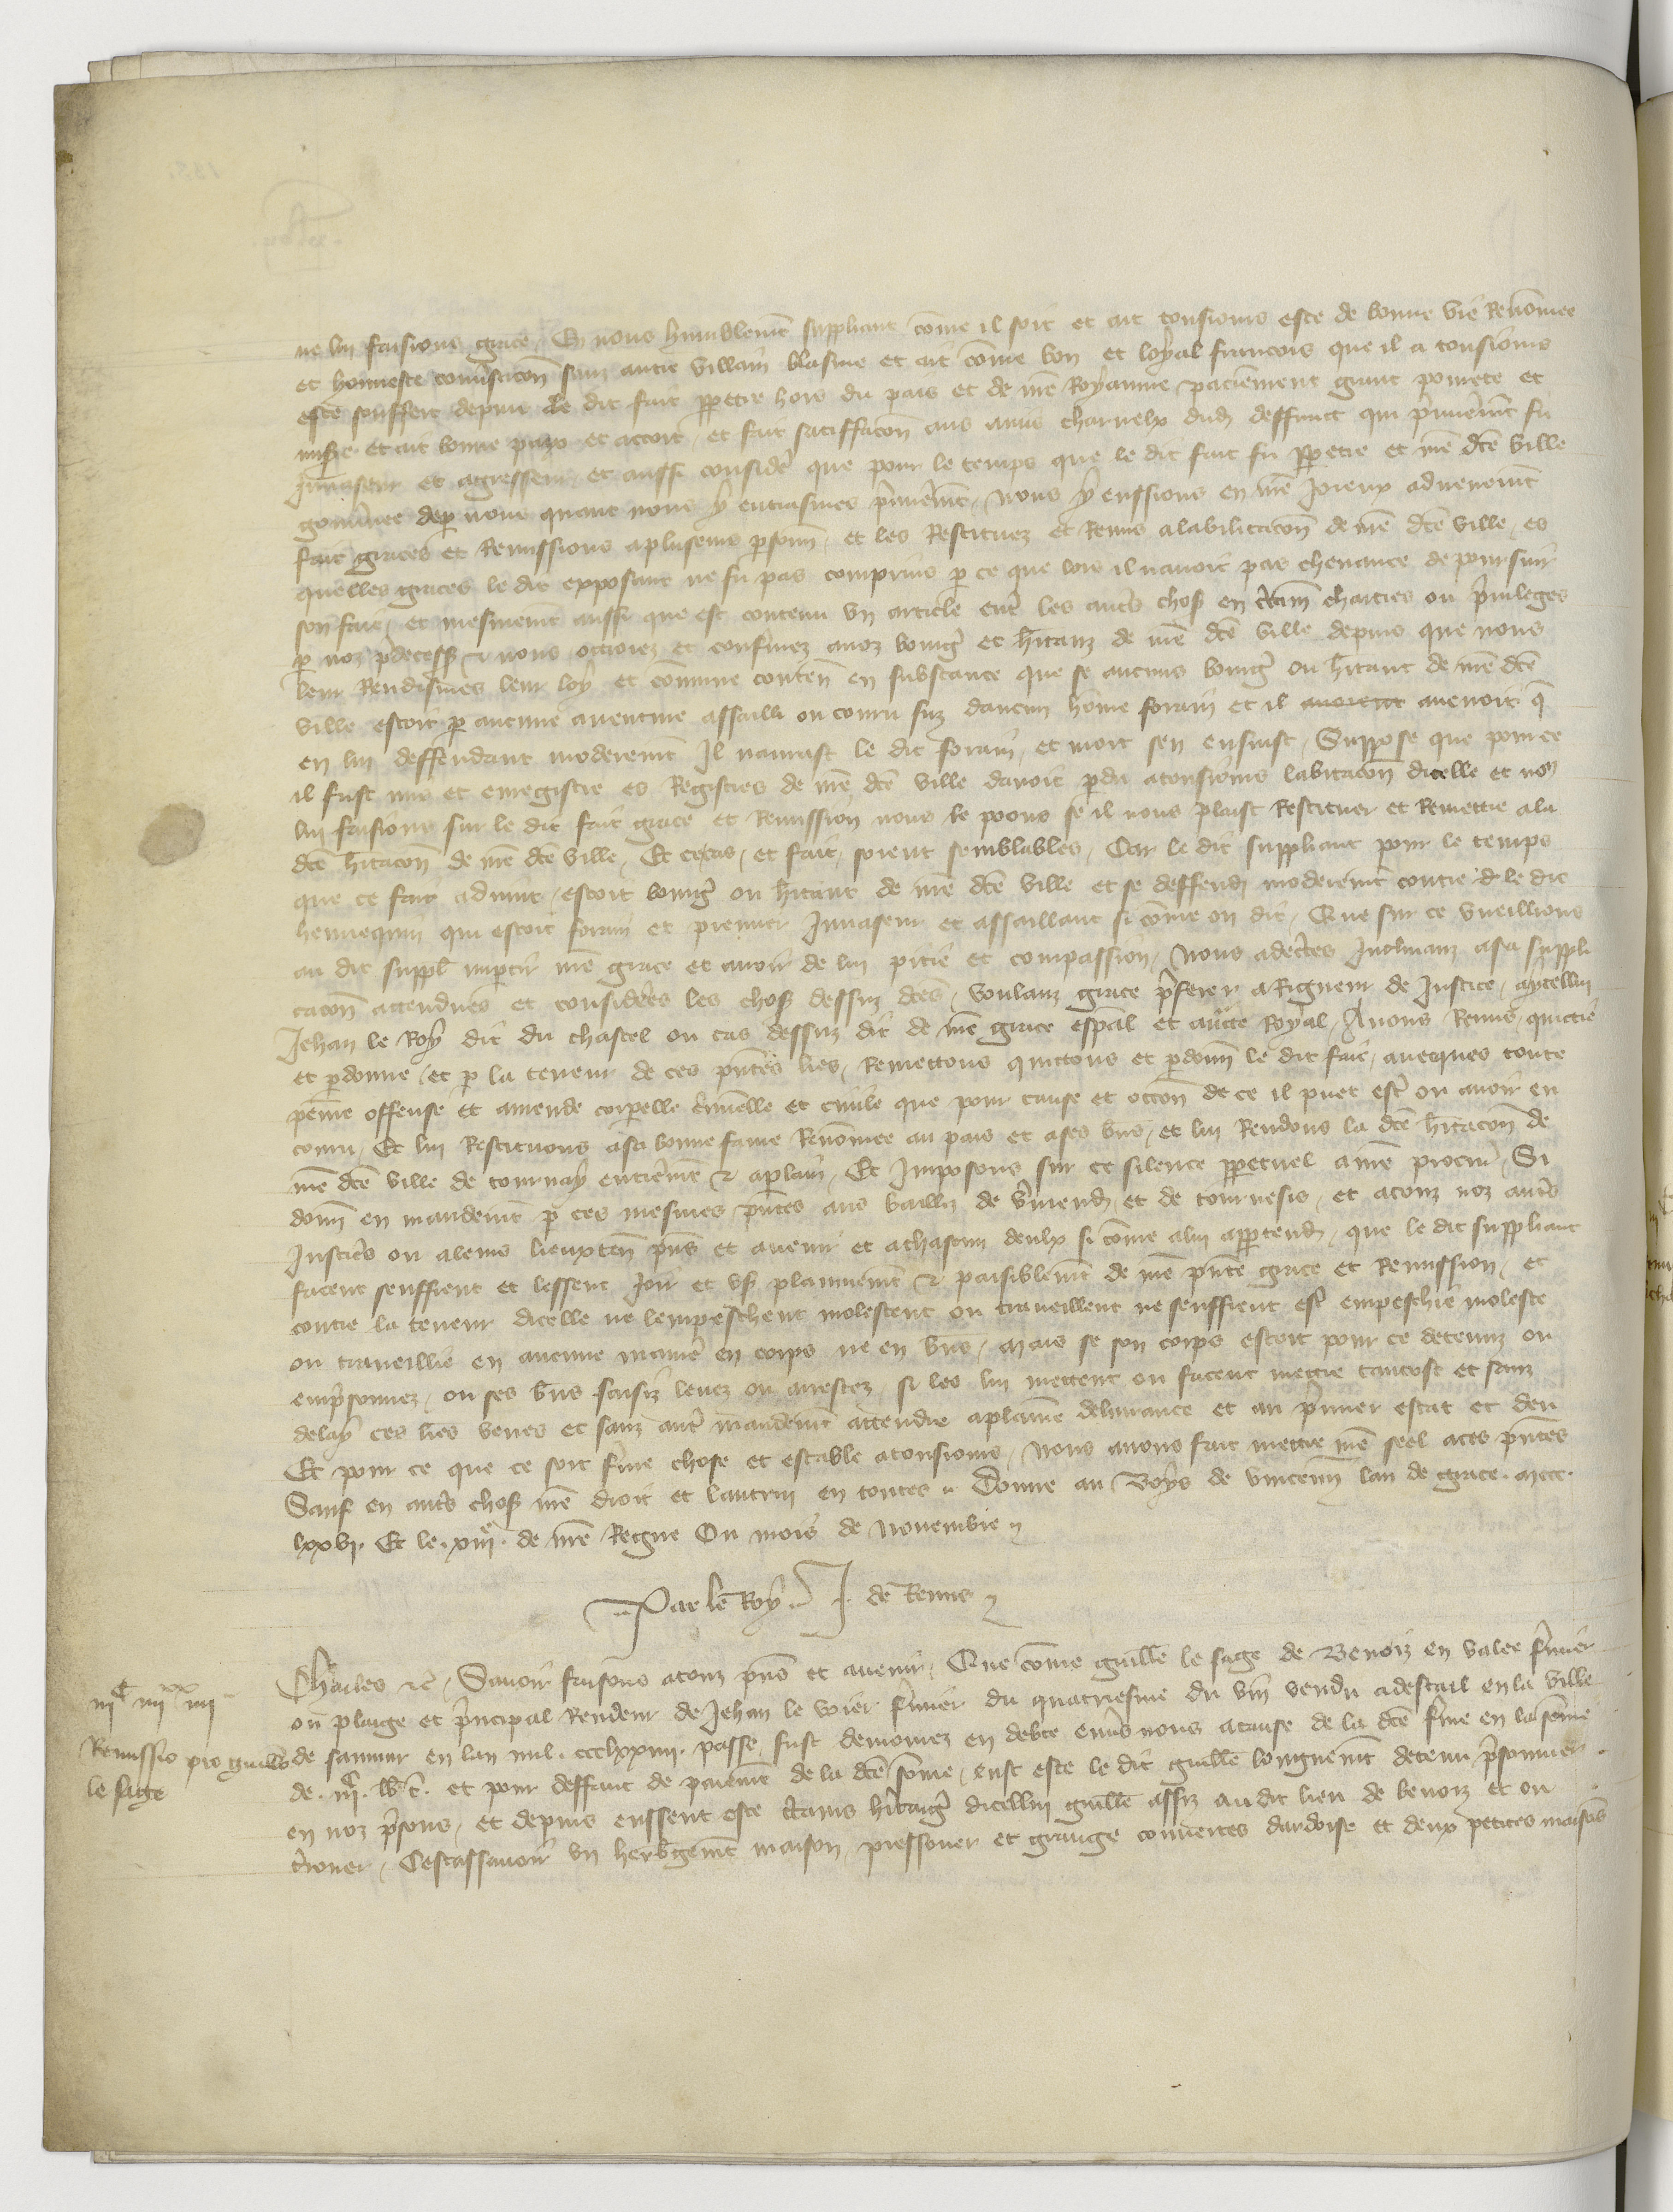 ne lui faisions grace, Et nous humblemēt suppliant cōme il soit et ait tousiours este de bonne vie Renōmee
et honneste conūsacōn sanz autre villain blasme et ait cōme bon et loyal francois que il a tousiours
este souffert depuis le dit fait ppetre hors du pais et de nr̄e Royaume paciēment grant pourete et
misere et ait bonne paix et accort, et fait satiffacōn aus amis charnelx dud deffunct qui p̄mierēmt fu
Inuaseur et agresseur, et aussi consideŕ que pour le temps que le dit fait fu ppetre et nr̄e dc̄e ville
gouu̾nee de p nous quant nous y entrasmes p̄mierēmt, nous y eussions en nr̄e Joieux aduenemt
fait graces et Remissions a pluseurs psonn, et les Restituez et Remis a labilitacōn de nr̄e dc̄e ville, es
quelles graces le dit exposant ne fu pas comprins p ce que lors il nauoit pas cheuance de poursuir
son fait, et mesmemt aussi que est contenu vn article ent̾ les aut̾s chos en ct̄am chartres ou p̄uileges
p noz p̄decess & nous ottroiez et confmez aux bourg̾ et hītanz de nr̄e dc̄e ville depuis que nous
leur Rendismes leur loy et cōmune contenn en substance que se aucuns bourg̾ ou hītant de nr̄e dc̄e
ville estoit p aucune auenture assailli ou couru suz daucun hōme forain et il auenoit q̄
en lui deffendant moderemt Il naurast le dit forain, et mort sen ensuist, Suppose que pour ce
il fust mis et enregistre es Registres de nr̄e dc̄e ville dauoir pdu a tousiours labitacōn dicelle et nō
lui faisions sur le dit fait grace et Remission nous le poons se il nous plaist Restituer et Remettre a la
dc̄e hītacōn de nr̄e dc̄e ville, Et ce cas, et fait, soient semblables, Car le dit suppliant pour le temps
que ce fait aduint, estoit bourg̾ ou hītant de nr̄e dc̄e ville et se deffendi moderemt contre le dit
hennequin qui estoit forain et premier Inuaseur et assaillant si cōme on dit, Que sur ce vueillions
au dit suppl impartir nr̄e grace et auoir de lui pitie et compassion, Nous adec̄tes Inclinanz a sa suppli
cacōn attendues et considerēs les chos dessuz dc̄es, Voulanz grace p̄ferer a Rigueur de Justice, aycellui
Jehan le Roy dit du chastel ou cas dessuz dit de nr̄e grace esp̄al et auc̄te Royal, Auons Remis, quictie
et pdonne, et p la teneur de ces pn̄tes lr̄es, Remettons quictons et pdonn le dit fait, auecques toute
peine offense et amende corpelle c̄minelle et ciuile que pour cause et occōn de ce il puet est̾ ou auoir en
couru, Et lui Restituons a sa bonne fame Renōmee au pais et a ses bn̄s, et lui Rendons la dc̄e hītacōn de
nr̄e dc̄e ville de tournay entierēmt & a plain, Et Imposons sur ce silence ppetuel a nr̄e procur̄, Si
donn en mandemt p ces mesmes pn̄tes aus bailliz de v̄mend, et de tournesis, et a touz noz aut̾s
Justic̄s ou a leurs lieuxten pn̄s et auenir et a chascun deulx si cōme a lui appartend, que le dit suppliant
facent seuffrent et lessent Joir et vs plainemt & paisiblemt de nr̄e pn̄te grace et Remission, et
contre la teneur dicelle ne lempeschent molestent ou trauueillent ne seuffrent est̾ empeschie moleste
ou trauueillie en aucune manier̄ en corps ne en bn̄s, Mais se son corps estoit pour ce detenuz ou
emp̄sonnez, ou ses bn̄s saisiz leuez ou arrestez, si les lui mettent ou facent mettre tantost et sanz
delay ces lr̄es veues et sanz aut̾ mandemt attendre a plaine deliurance et au p̄mier estat et deu
Et pour ce que ce soit ferme chose et estable a tousiours, Nous auons fait mettre nr̄e seel a ces pn̄tes
Sauf en aut̾s chos nr̄e droit et lautrui en toutes. Donne au Boys de vincenn lan de grace. mccc.
lxxvi. Et le. xiiie. de nr̄e Regne Ou mois de Nouembre
Par le Roy. J. de Remis
iiic iiiixx iiii
Remissio pro guillo
le sage
Charles &c̄, Sauoir faisons a touz pn̄s et auenir, Que cōme guillē le sage de Benoiz en valee fermier
ou plaige et p̄ncipal Rendeur de Jehan le voier fermier du quatriesme du vin vendu a destail en la ville
de saumur en lan mil. ccclxxiiii. passe, fust demourez en debte enu̾s nous a cause de la dc̄e fme en la sōme
de et pour deffaut de paiemt de la dc̄e sōme, eust este le dit guillē longuemt detenu p̄sonnier
en noz p̄sons, et depuis eussent este c̄tains hītaig̾ dicellui guillē assiz au dit lieu de benoiz et ou
t̾rouer, Cestassauoir vn herb̾gemt maison, pressouer et grange couuertes dardoise et deux petites maisōs